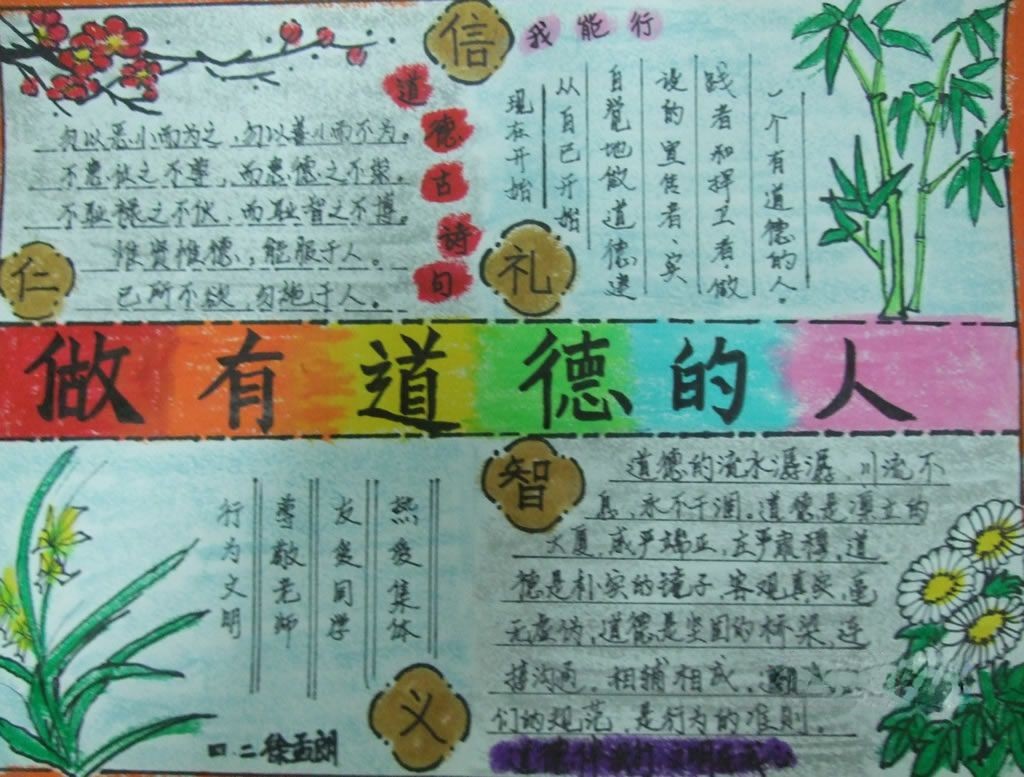 信
我能行
道德古诗句
勿以恶小而为之，勿以善小而不为。
不患位之不尊，而患德之不崇。
不耻禄之不伙，而耻智之不博。
惟贤惟德，能服于人。
己所不欲，勿施于人。
仁
礼
现在开始
从自己开始
自觉地做道德建
设的宣传者、实
践者和捍卫者，做
一个有道德的人。
做有道德的人
行为文明
尊敬老师
友爱同学
热爱集体
义
四.二徐孟朗
智
道德的流水潺潺，川流不
息，永不干涸。道德是凛立的
大厦，威严端正，庄严肃穆，道
德是朴实的镜子，客观真实，毫
无虚伪，道德是坚固的桥梁，连
接沟通，相辅相成，
们的规范，是行为的准则。
道德伴我行